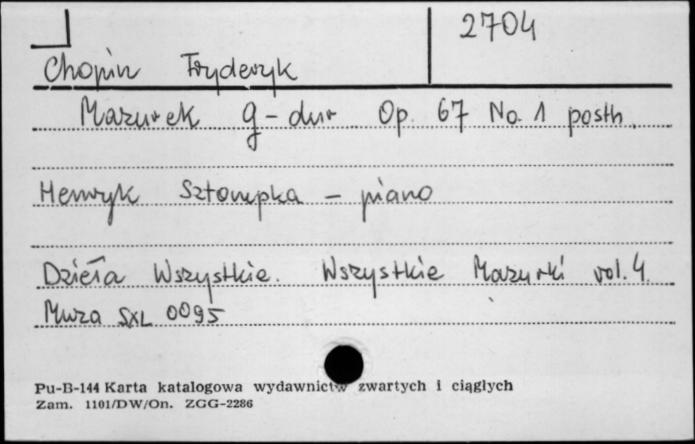 2704
Chopin Fryderyk
Mazurek g-dur Op. 67 No. 1 posth.
Henryk Sztompka - piano
Dzieła Wszystkie. Wszystkie Mazurki vol. 4
Muza SXL 0095
Pu-B-144 Karta katalogowa wydawnictw zwartych i ciągłych
Zam. 1101/DW/On. ZGG-2286